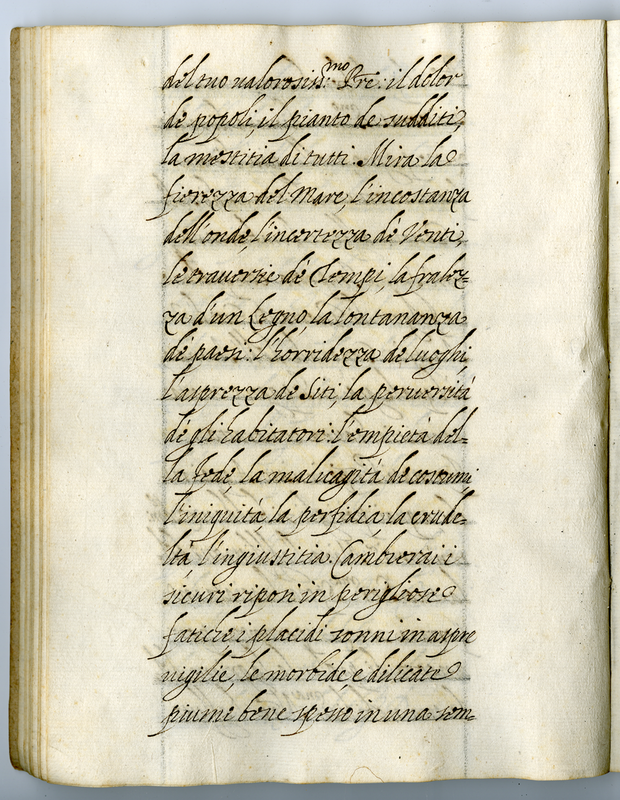 del tuo valorosiss.mo Pre: il dolor
de popoli, il pianto de sudditi,
la mestitia di tutti. Mira la
fierezza del Mare, l'incostanza
dell'onde, l'incertezza dè Venti,
le traversie dè Tempi, la fralez=
za d'un Legno, la lontananza
dè paesi: l'horridezza de luoghi,
l'asprezza de Siti, la perversità
dè gli habitatori: l'empietà del=
la fede, la malvagità de costumi,
l'iniquità la perfidia, la crude=
ltà l'ingiustitia. Cambierai i
sicuri riposi in perigliose
fatiche i placidi sonni in aspre
vigilie, le morbide, e dilicate
piume bene spesso in una sem=